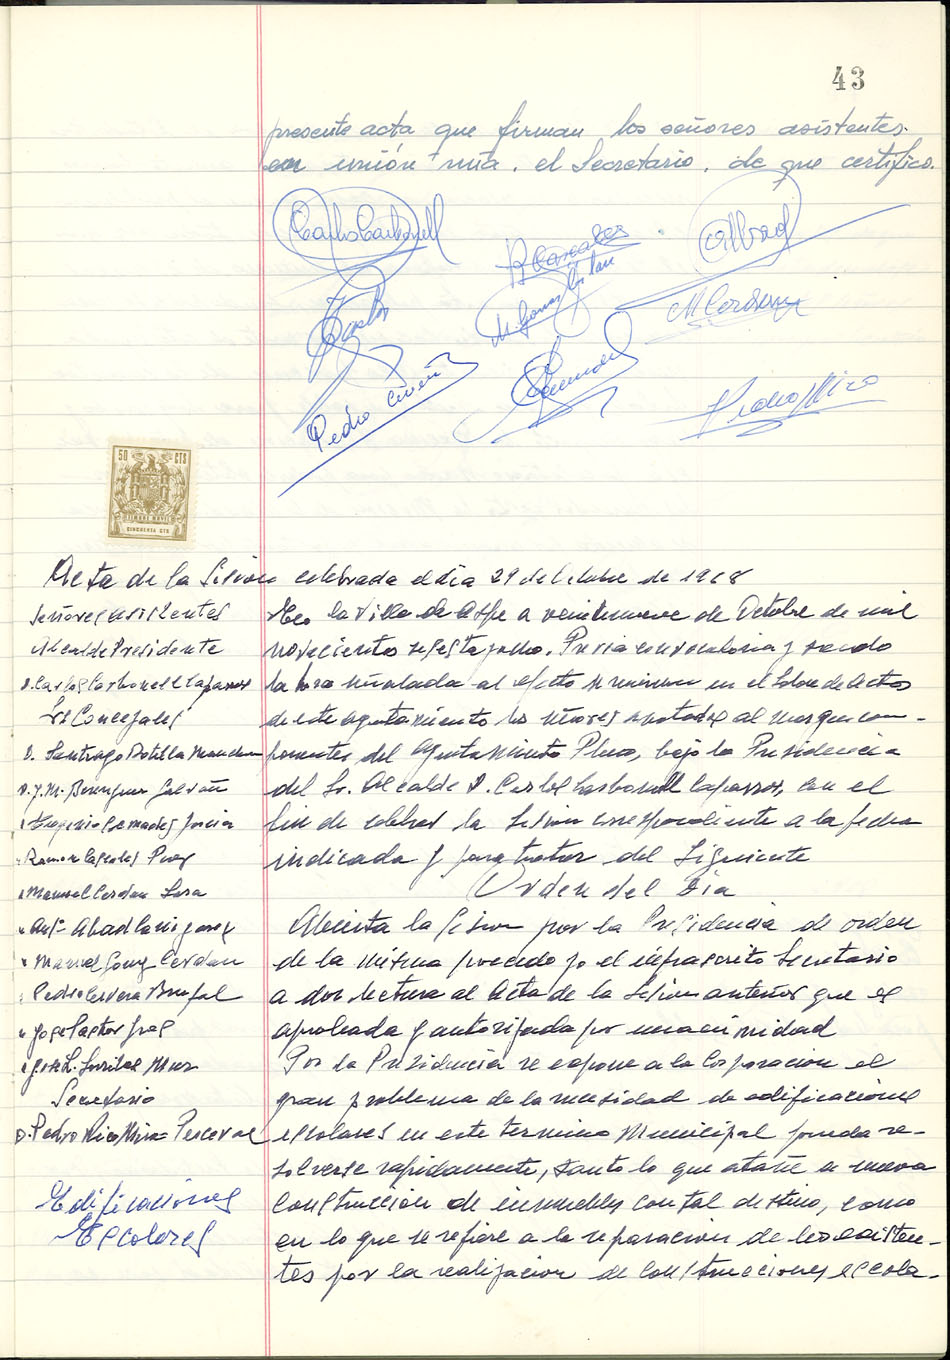 43
presente acta que firman los señores asistentes.
en unión mía, el Secretario, de que certifico.
Carlos Carbonell
M. Cerdán
Pedro Cerverñ
Pedro Mico
50 CTS
TIMBRE MOVIL
CINCUENTA CTS
Acta de la Sesión celebrada el día 29 de Octubre de 1968
Señores asistentes
Alcalde Presidente
D. Carlos Carbonell Caparros
Srs Concejales
D. Santiago Botella
D. J. M. Berenguer Galvañ
Eugenio Cremades Garcia
Ramon Cascales Puig
Manuel Cerdan Sora
Antº Abad Cañizarez
Manuel Gonz Cerdan
Pedro Cervera Brufal
Jose Pastor
Jose L.
Secretario
D. Pedro Mico Mira-Perceval
Edificaciones
Escolares
En la Villa de Aspe a veintinueve de Octubre de mil
novecientos sesenta y ocho. Previa convocatoria y siendo
la hora señalada al efecto se reunieron en el Salon de Actos
de este Ayuntamiento los señores anotados al margen com-
ponentes del Ayuntamiento Pleno, bajo la Presidencia
del Sr. Alcalde D. Carlos Carbonell Caparros, con el
fin de celebrar la Sesion correspondiente a la fecha
indicada y para tratar del Siguiente
Orden del Dia
Abierta la Sesion por la Presidencia de orden
de la misma procedo yo el infrascrito Secretario
a dar lectura al Acta de la Sesion anterior que es
aprobada y autorizada por unanimidad
Por la Presidencia se expone a la Corporacion el
gran problema de la necesidad de edificaciones
escolares en este termino Municipal pueda re-
solverse rapidamente, tanto lo que atañe a nueva
construccion de inmuebles con tal destino, como
en lo que se refiere a la reparacion de los existen-
tes por la realizacion de Construcciones escola-